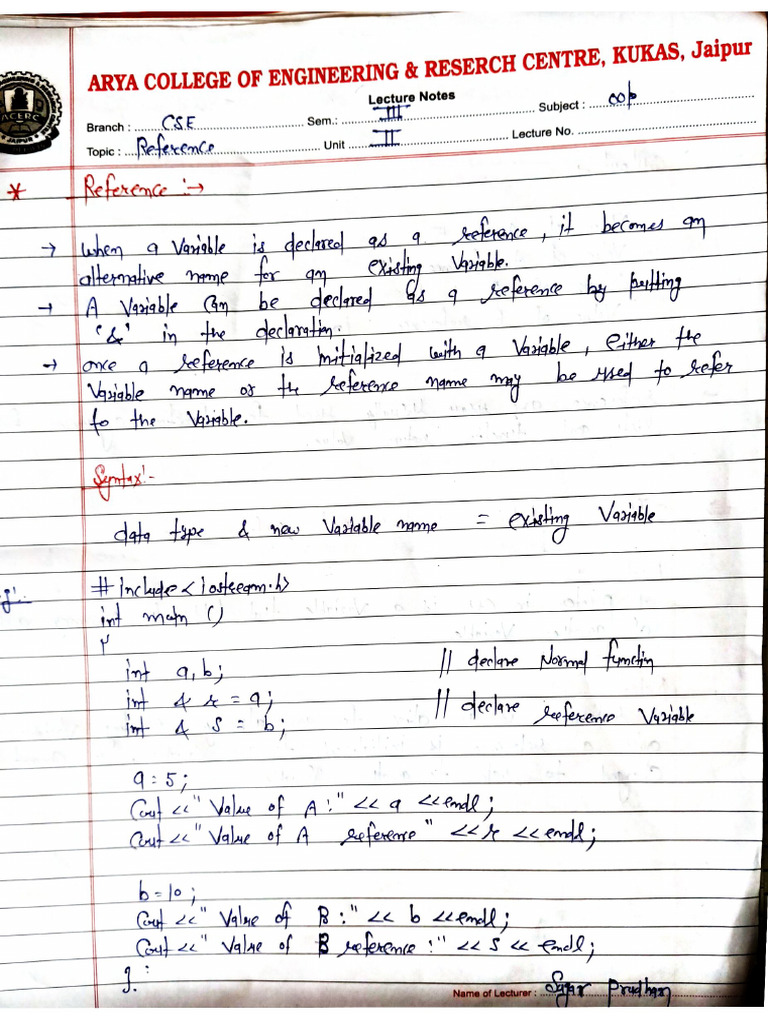 ARYA COLLEGE OF ENGINEERING & RESERCH CENTRE, KUKAS, Jaipur
Lecture Notes
Branch : CSE Sem.: III Subject : OOP
Topic : Reference Unit II Lecture No.
ACERC
JAIPUR
* Reference :→
→ When a Variable is declared as a reference, it becomes an
alternative name for an existing Variable.
→ A Variable Can be declared as a reference by putting
'&' in the declaration.
→ once a reference is initialized with a Variable, either the
Variable name or the reference name may be used to refer
to the Variable.
Syntax:-
data type & new Variable name = existing Variable
# include <iostream.h>
int main ()
{
int a, b; // declare Normal functin
int & r = a; // declare reference Variable
int & S = b;
a = 5;
Cout <<" Value of A :" << a <<endl;
Cout <<" Value of A reference " <<r << endl;
b = 10;
Cout <<" Value of B :" << b <<endl;
Cout <<" Value of B reference :" << S << endl;
}
Name of Lecturer : Sagar Pradhan